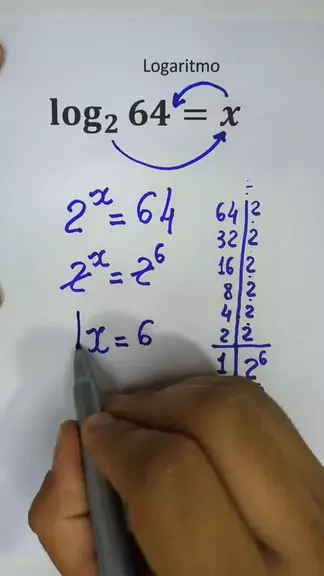 Logaritmo
log₂ 64 = x
2ˣ = 64
2ˣ = 2⁶
x = 6
÷
64 | 2
32 | 2
16 | 2
8 | 2
4 | 2
2 | 2
1 | 2⁶